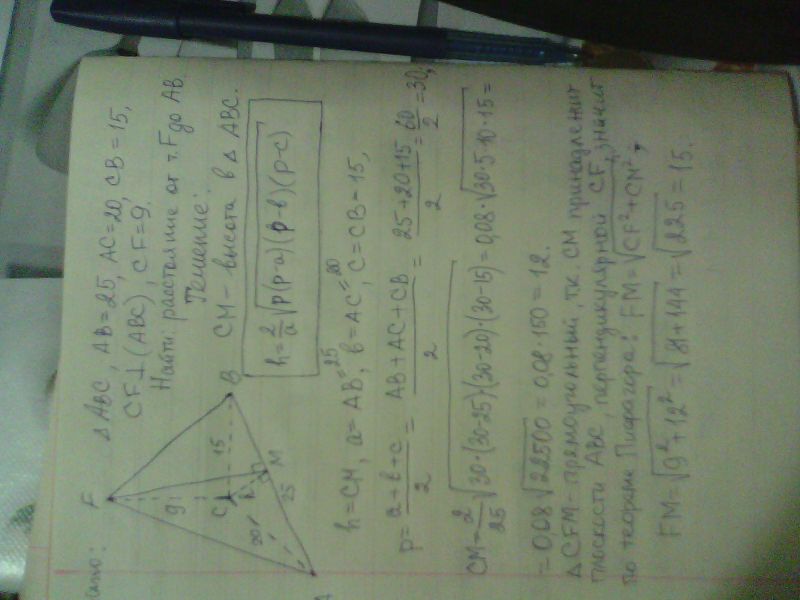 Дано:
Δ ABC, AB=25, AC=20, CB=15,
CF⊥(ABC), CF=9.
Найти: расстояние от т. F до AB.
Решение:
CM – высота в Δ ABC.
F
9
C
15
B
20
h
M
25
A
h = 2/a √p(p-a)(p-b)(p-c)
h=CM, a=AB=25, b=AC=20, c=CB=15,
p= a+b+c/2 = AB+AC+CB/2 = 25+20+15/2 = 60/2 =30,
CM= 2/25 √30·(30-25)·(30-20)·(30-15) = 0,08·√30·5·10·15 =
= 0,08√22500 = 0,08·150 = 12.
Δ CFM – прямоугольный, т.к. CM принадлежит
плоскости ABC, перпендикулярной CF, значит
по теореме Пифагора: FM=√CF²+CM²,
FM=√9²+12² = √81+144 = √225 = 15.